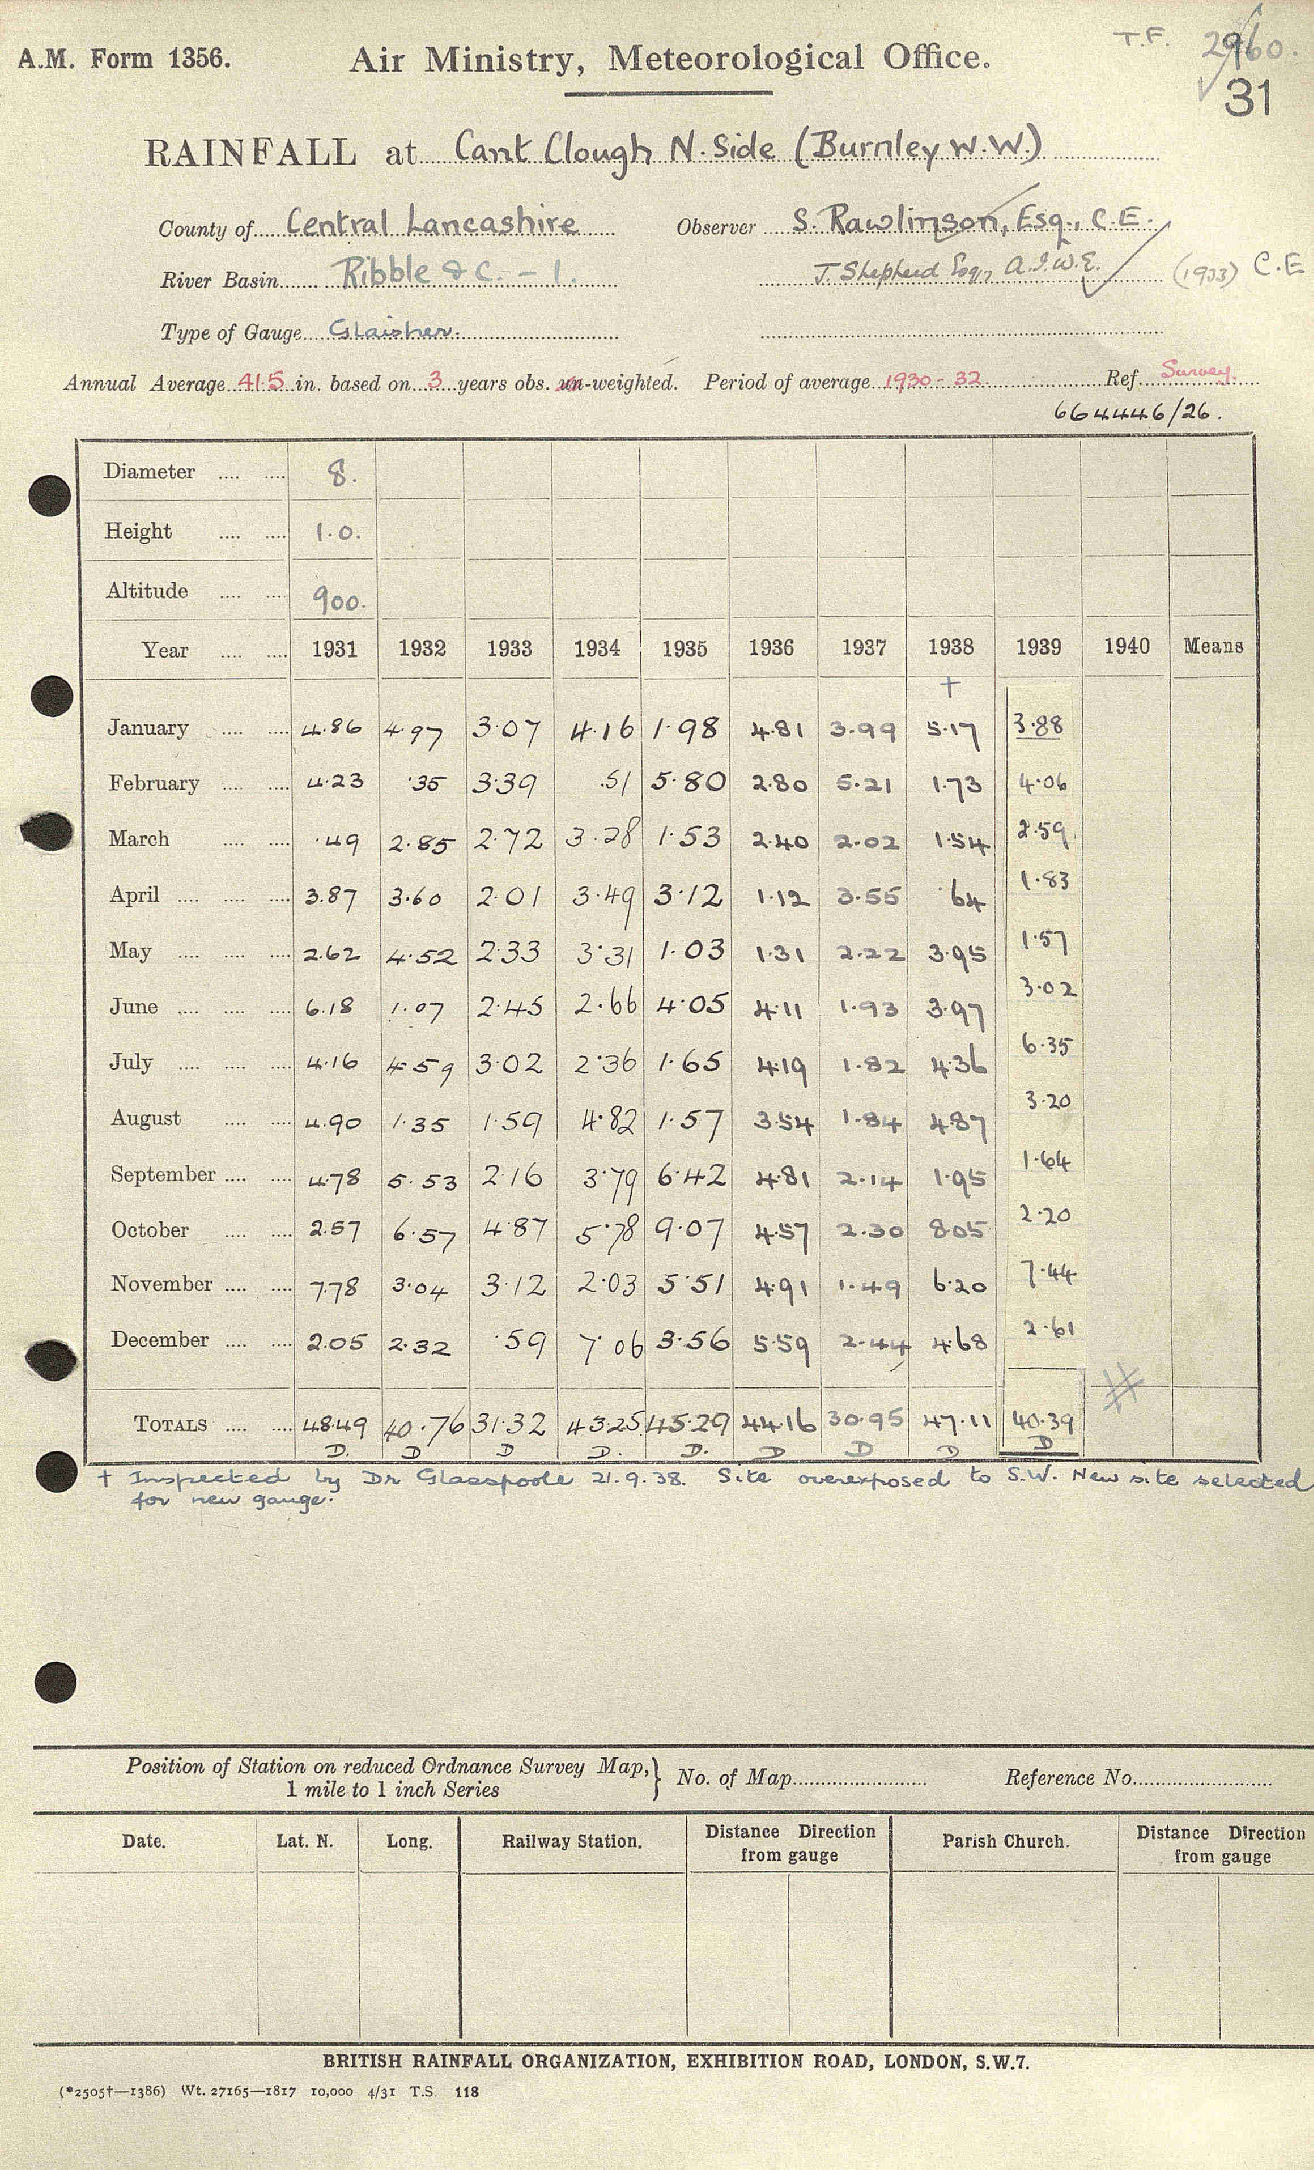 A.M. Form 1356.
Air Ministry, Meteorological Office.
T.F. 2960.
31
RAINFALL at Cant Clough N. Side (Burnley W.W.)
County of Central Lancashire Observer S. Rawlinson, Esq., C.E.
River Basin Ribble &c. - 1. J. Shepherd Esq., A.I.W.E. (1933) C.E
Type of Gauge Glaisher.
Annual Average 41.5 in. based on 3 years obs. un-weighted. Period of average 1930-32 Ref. Survey.
664446/26.
Diameter .... .... 8.
Height .... .... 1.0.
Altitude .... .... 900.
Year .... .... 1931 1932 1933 1934 1935 1936 1937 1938 1939 1940 Means
†
January .... .... 4.86 4.97 3.07 4.16 1.98 4.81 3.99 5.17 3.88
February .... .... 4.23 .35 3.39 .51 5.80 2.80 5.21 1.73 4.06
March .... .... .49 2.85 2.72 3.28 1.53 2.40 2.02 1.54 2.59
April .... .... .... 3.87 3.60 2.01 3.49 3.12 1.12 3.55 .64 1.83
May .... .... .... 2.62 4.52 2.33 3.31 1.03 1.31 2.22 3.95 1.57
June .... .... .... 6.18 1.07 2.45 2.66 4.05 4.11 1.93 3.97 3.02
July .... .... .... 4.16 4.59 3.02 2.36 1.65 4.19 1.82 4.36 6.35
August .... .... 4.90 1.35 1.59 4.82 1.57 3.54 1.84 4.87 3.20
September .... .... 4.78 5.53 2.16 3.79 6.42 4.81 2.14 1.95 1.64
October .... .... 2.57 6.57 4.87 5.78 9.07 4.57 2.30 8.05 2.20
November .... .... 7.78 3.04 3.12 2.03 5.51 4.91 1.49 6.20 7.44
December .... .... 2.05 2.32 .59 7.06 3.56 5.59 2.44 4.68 2.61
TOTALS .... .... 48.49 40.76 31.32 43.25 45.29 44.16 30.95 47.11 40.39
D. D D D. D. D D D D
† Inspected by Dr Glasspoole 21.9.38. Site overexposed to S.W. New site selected
for new gauge.
Position of Station on reduced Ordnance Survey Map, } No. of Map Reference No.
1 mile to 1 inch Series
Date. Lat. N. Long. Railway Station. Distance Direction from gauge Parish Church. Distance Direction from gauge
BRITISH RAINFALL ORGANIZATION, EXHIBITION ROAD, LONDON, S.W.7.
(*2505†—1386) Wt. 27165—1817 10,000 4/31 T.S. 118